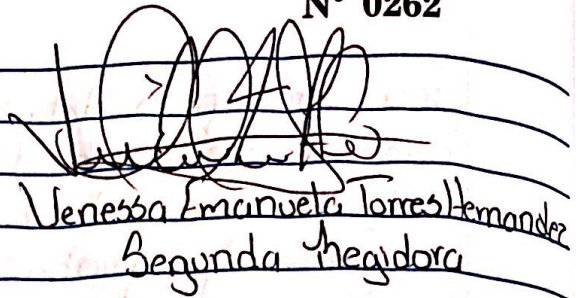 N° 0262
Venessa Emanuela Torres Hernandez
Segunda Regidora